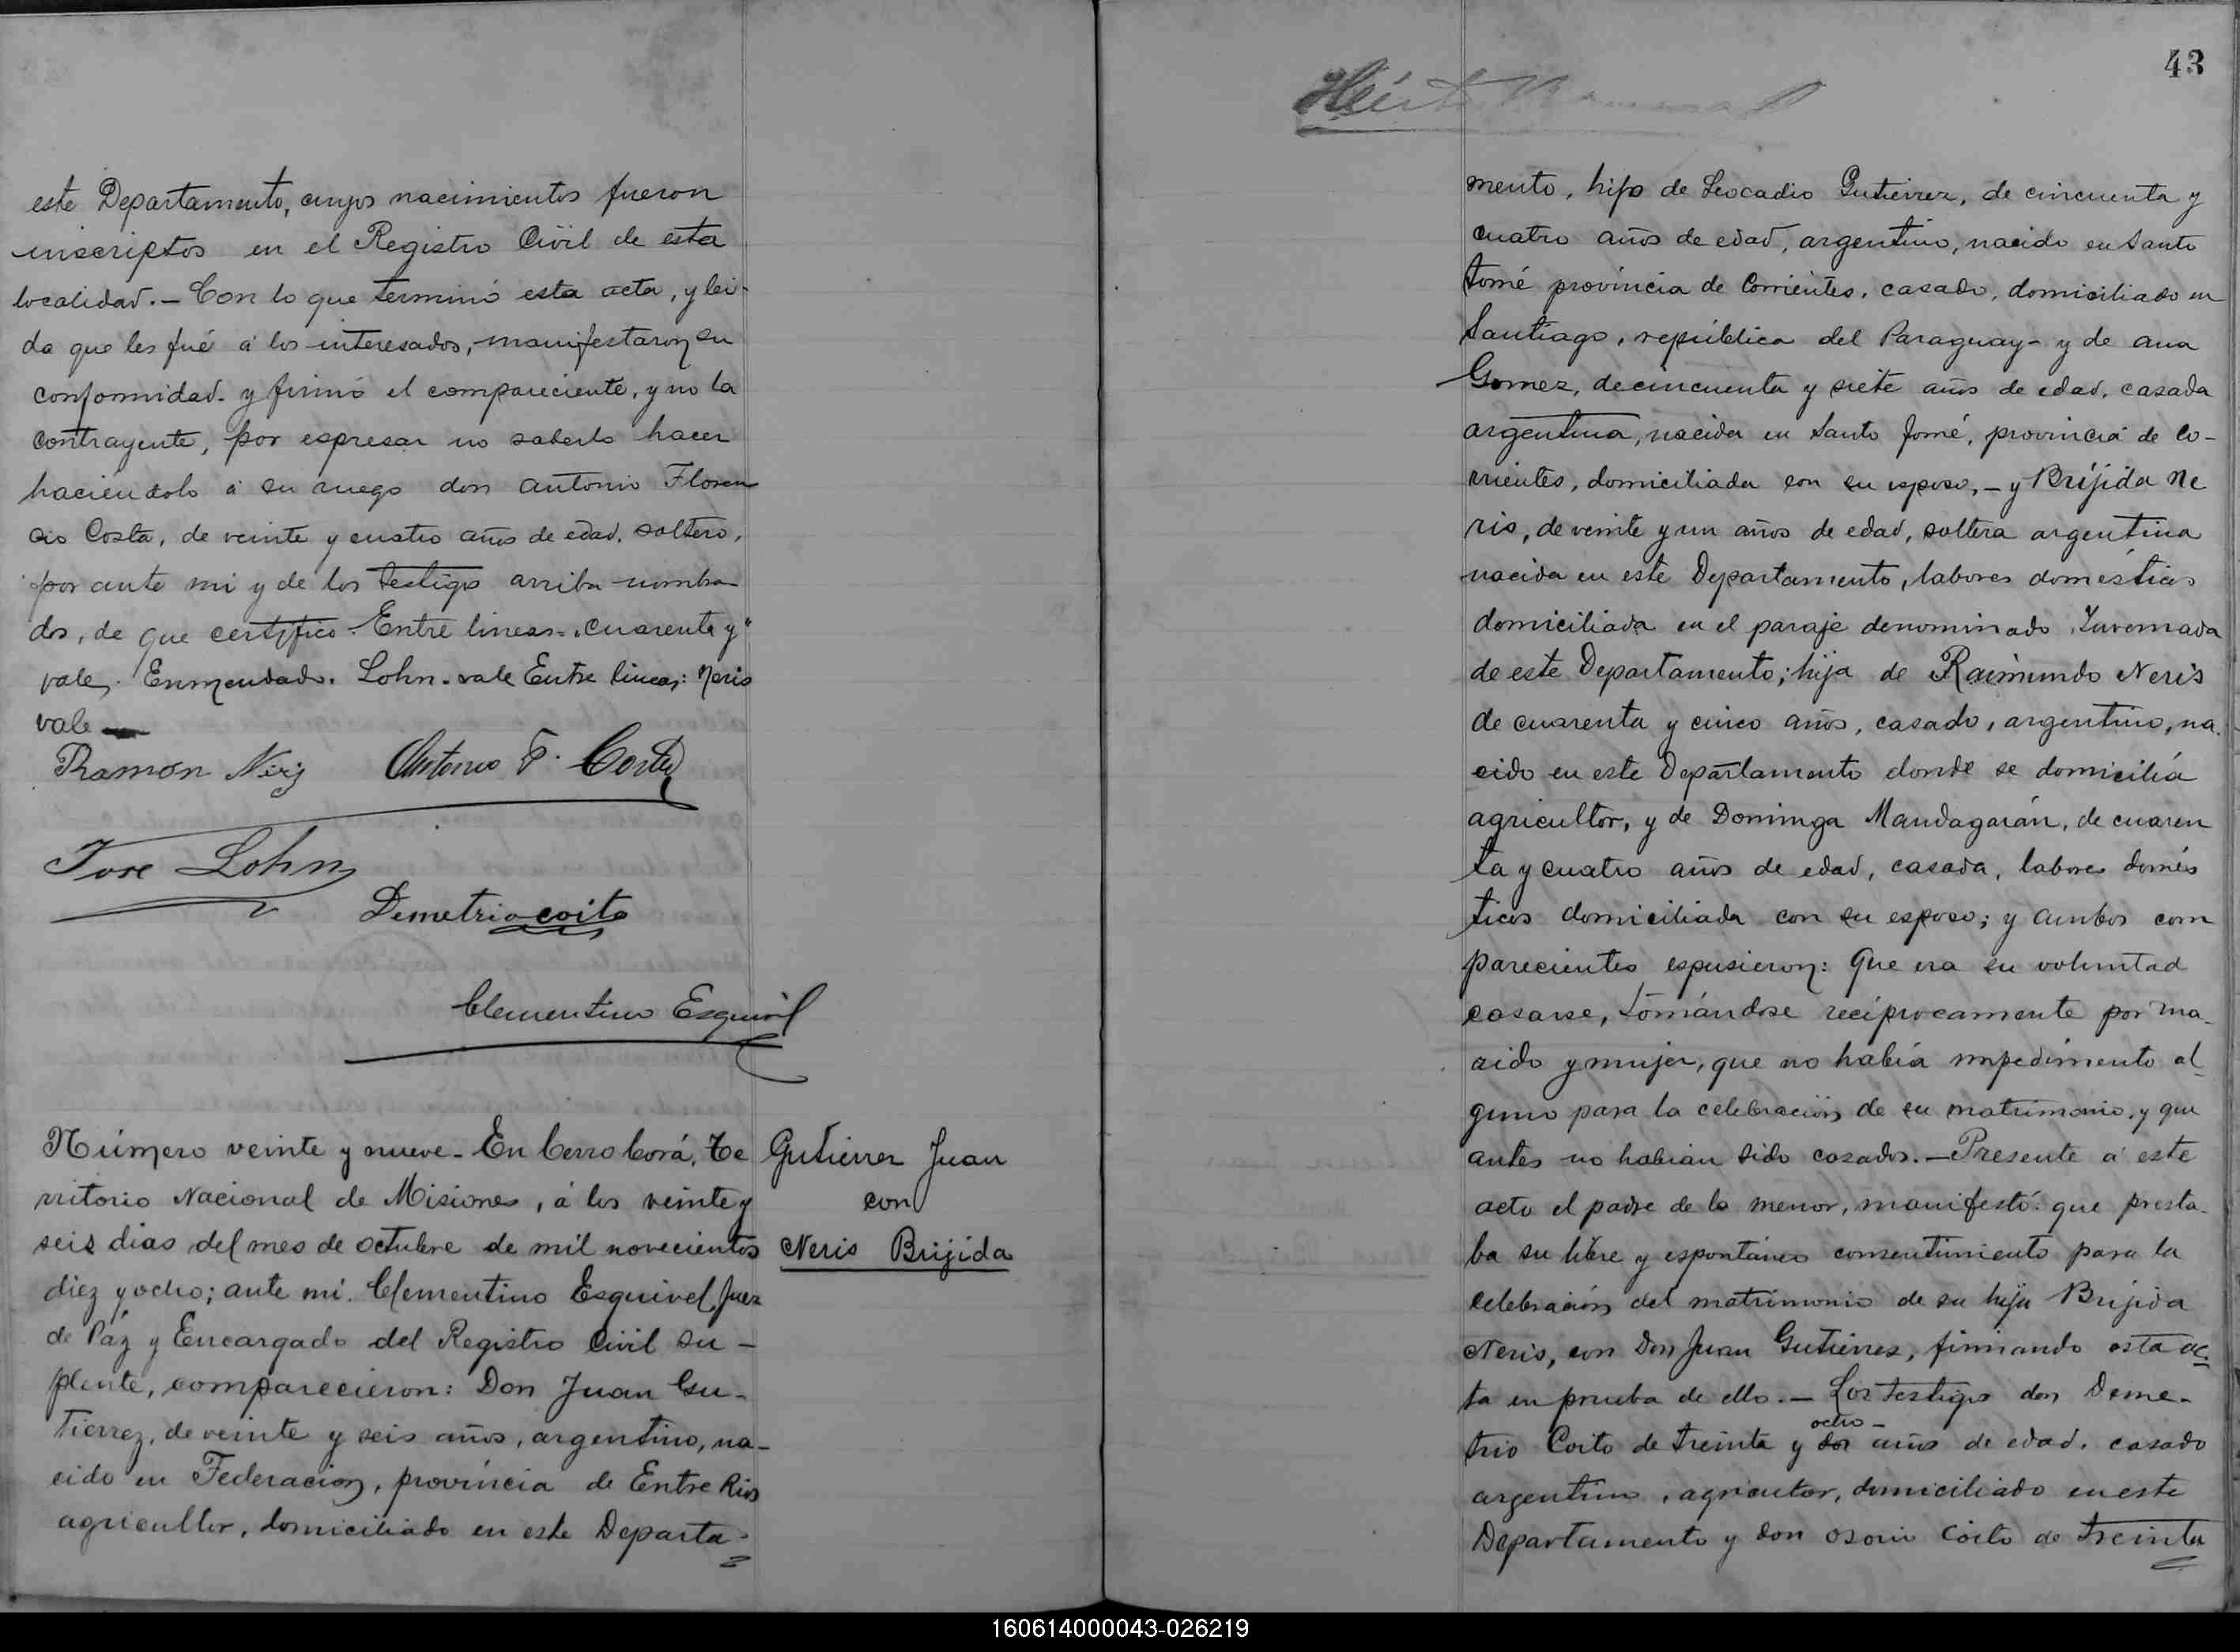 este Departamento, cuyos nacimientos fueron
inscriptos en el Registro Civil de esta
localidad. — Con lo que terminó esta acta, y lei-
da que les fué á los interesados, manifestaron su
conformidad. y firmó el compareciente, y no la
contrayente, por espresar no saberlo hacer
haciéndolo á su ruego don Antonio Floren
cio Costa, de veinte y cuatro años de edad. soltero,
por ante mi y de los testigos arriba nombra
dos, de que certifico. Entre lineas. "cuarenta y"
vale. Enmendado. Lohn. vale Entre lineas: Neris
vale
Ramón Neris Antonio F. Costa
Jose Lohn
Demetrio coito
Clementino Esquivel
Número veinte y nueve. En Cerro Corá, Te
rritorio Nacional de Misiones, á los veinte y
seis dias del mes de octubre de mil novecientos
diez y ocho; ante mi. Clementino Esquivel, Juez
de Páz y Encargado del Registro Civil su-
plente, comparecieron: Don Juan Gu-
tierrez, de veinte y seis años, argentino, na-
cido en Federacion, provincia de Entre Rios
agricultor, domiciliado en este Departa-
Gutierrez Juan
con
Neris Brijida
43
mento, hijo de Leocadio Gutierrez, de cincuenta y
cuatro años de edad, argentino, nacido en Santo
tomé provincia de Corrientes, casado, domiciliado en
Santiago, república del Paraguay- y de ana
Gomez, de cincuenta y siete años de edad, casada
argentina, nacida en Santo Tomé, provincia de Co-
rrientes, domiciliada con su esposo, — y Brijida Ne
ris, de veinte y un años de edad, soltera argentina
nacida en este Departamento, labores domésticas
domiciliada en el paraje denominado Invernada
de este Departamento; hija de Raimundo Neris
de cuarenta y cinco años, casado, argentino, na-
cido en este Departamento donde se domicilia
agricultor, y de Dominga Mandagarán, de cuaren
ta y cuatro años de edad, casada, labores domés
ticos domiciliada con su esposo; y ambos com
parecientes espusieron: Que era su voluntad
casarse, tomándose recíprocamente por ma-
rido y mujer, que no había impedimento al
guno para la celebración de su matrimonio. y que
antes no habian sido casados. — Presente á este
acto el padre de la menor, manifestó: que presta-
ba su libre y espontáneo consentimiento para la
celebración del matrimonio de su hija Brijida
Neris, con Don Juan Gutierrez, firmando esta ac
ta en prueba de ello. — Los testigos don Deme-
ocho -
trio Coito de treinta y dos años de edad. casado
argentino, agricutor, domiciliado en este
Departamento y don osorio Coito de treinta
160614000043-026219